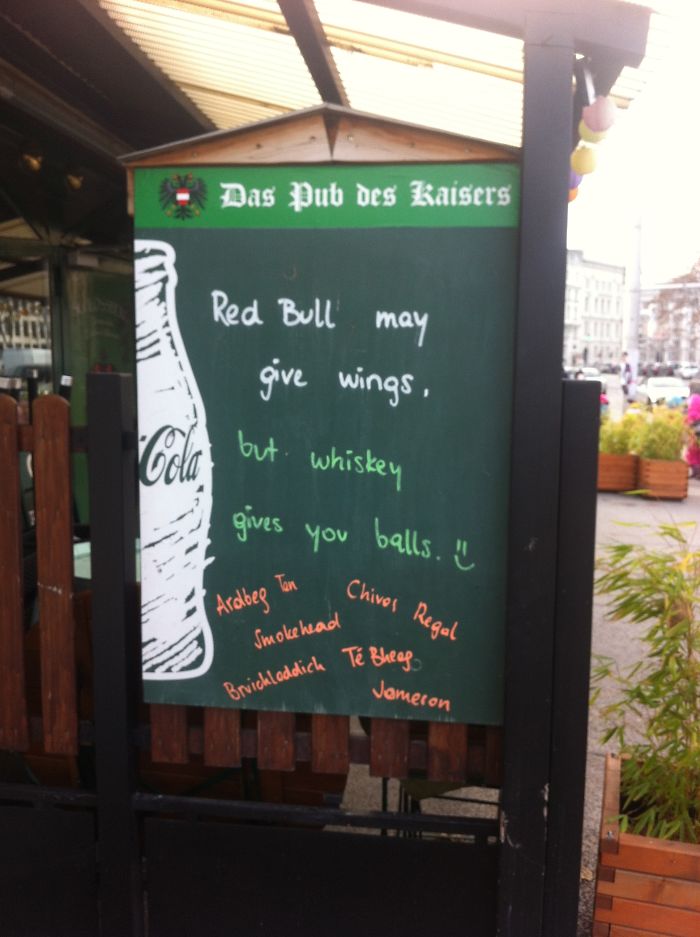 Das Pub des Kaisers
Red Bull may
give wings,
but whiskey
gives you balls. 
Cola
Ardbeg Ten
Chivas Regal
Smokehead
Té Bheag
Bruichladdich
Jameron